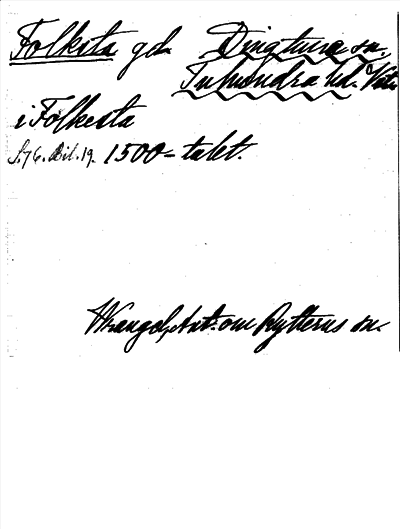 Folkesta gd. Dingtuna sn.
Tuhundra hd. Vstm
i Folkesta
S. 76. Bil. 19. 1500-talet.
Wrangel, Ant. om Rytterns sn.